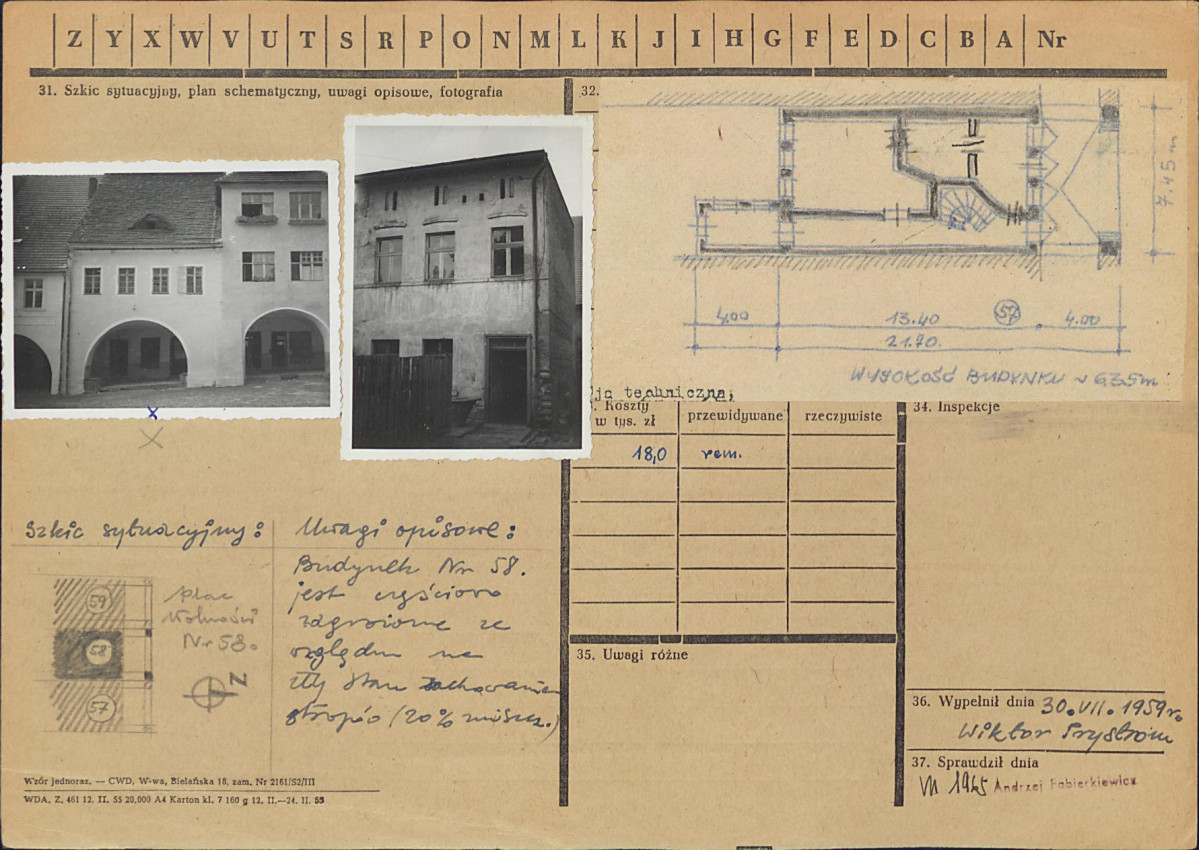 Z Y X W V U T S R P O N M L K J I H G F E D C B A Nr
31. Szkic sytuacyjny, plan schematyczny, uwagi opisowe, fotografia
32.
7.45 m
4.00 13.40 57 4.00
21.70.
WYSOKOŚĆ BUDYNKU ~ 6,35m
ja techniczna,
Koszty
w tys. zł
przewidywane
rzeczywiste
18,0 rem.
34. Inspekcje
x
x
Szkic sytuacyjny:
59
58
57
Plac
Wolności
Nr 58.
N
Uwagi opisowe:
Budynek Nr 58.
jest częściowo
zagrożone ze
względu na
zły stan zachowania
stropów (20% zniszcz.)
35. Uwagi różne
36. Wypełnił dnia 30.VII.1959 r.
Wiktor
37. Sprawdził dnia
VII 1965 Andrzej Fabierkiewicz
Wzór jednoraz. — CWD, W-wa, Bielańska 18, zam. Nr 2161/S2/III
WDA. Z. 461 12. II. 55 20,000 A4 Karton kl. 7 160 g 12. II.—24. II. 55